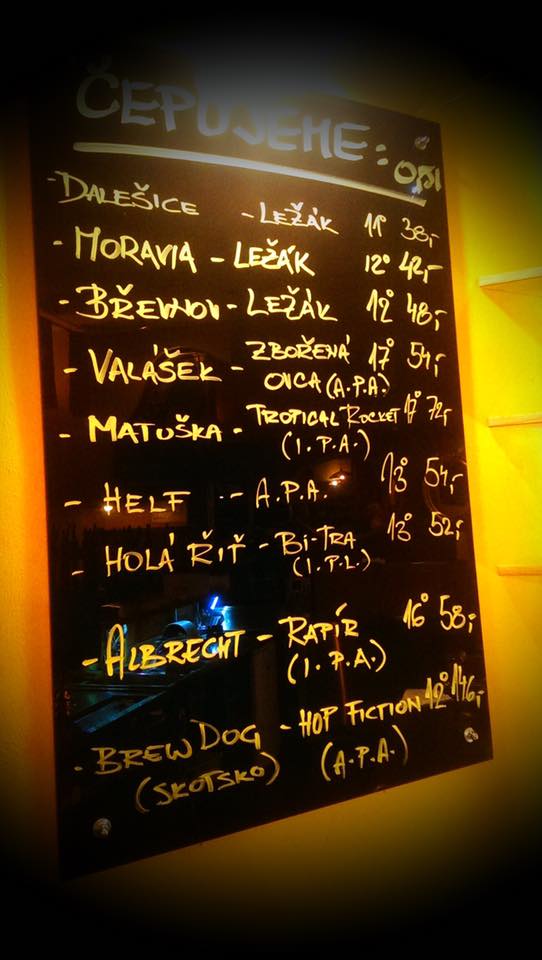 ČEPUJEME: 0,5l
- DALEŠICE - LEŽÁK 11° 38,-
- MORAVIA - LEŽÁK 12° 42,-
- BŘEVNOV - LEŽÁK 12° 48,-
- VALÁŠEK - ZBOŘENÁ 17° 54,-
OVCA (A.P.A.)
- MATUŠKA - TROPICAL ROCKET 17° 72,-
(I.P.A.)
- HELF - A.P.A. 13° 54,-
- HOLÁ ŘIŤ - BI-TRA 13° 52,-
(I.P.L.)
- ALBRECHT - RAPÍR 16° 58,-
(I.P.A.)
- BREWDOG - HOP FICTION 12° 146,-
(SKOTSKO) (A.P.A.)